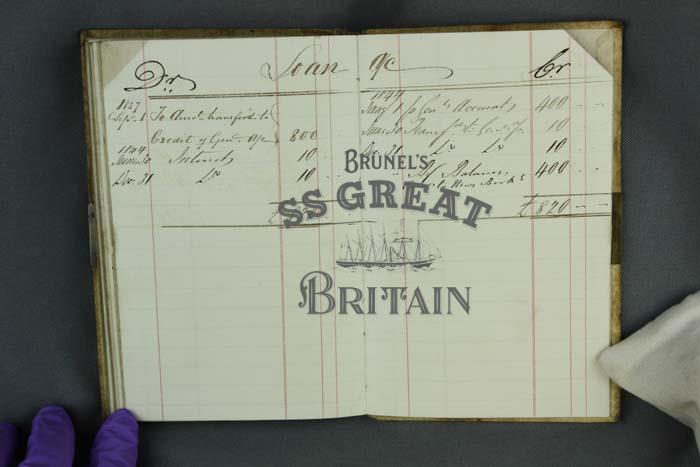 Dr Loan a/c Cr
1857
Sep. 1 To Amt. transferd to
Credit of Genl. a/c 800
1844
June 30 Interest 10
Dec. 31 Do 10
1844
Jany 1 Genl. Account 400
June 30 10
Do Do 10
By Balance 400
to New Book
£820
BRUNEL'S
SS GREAT
BRITAIN